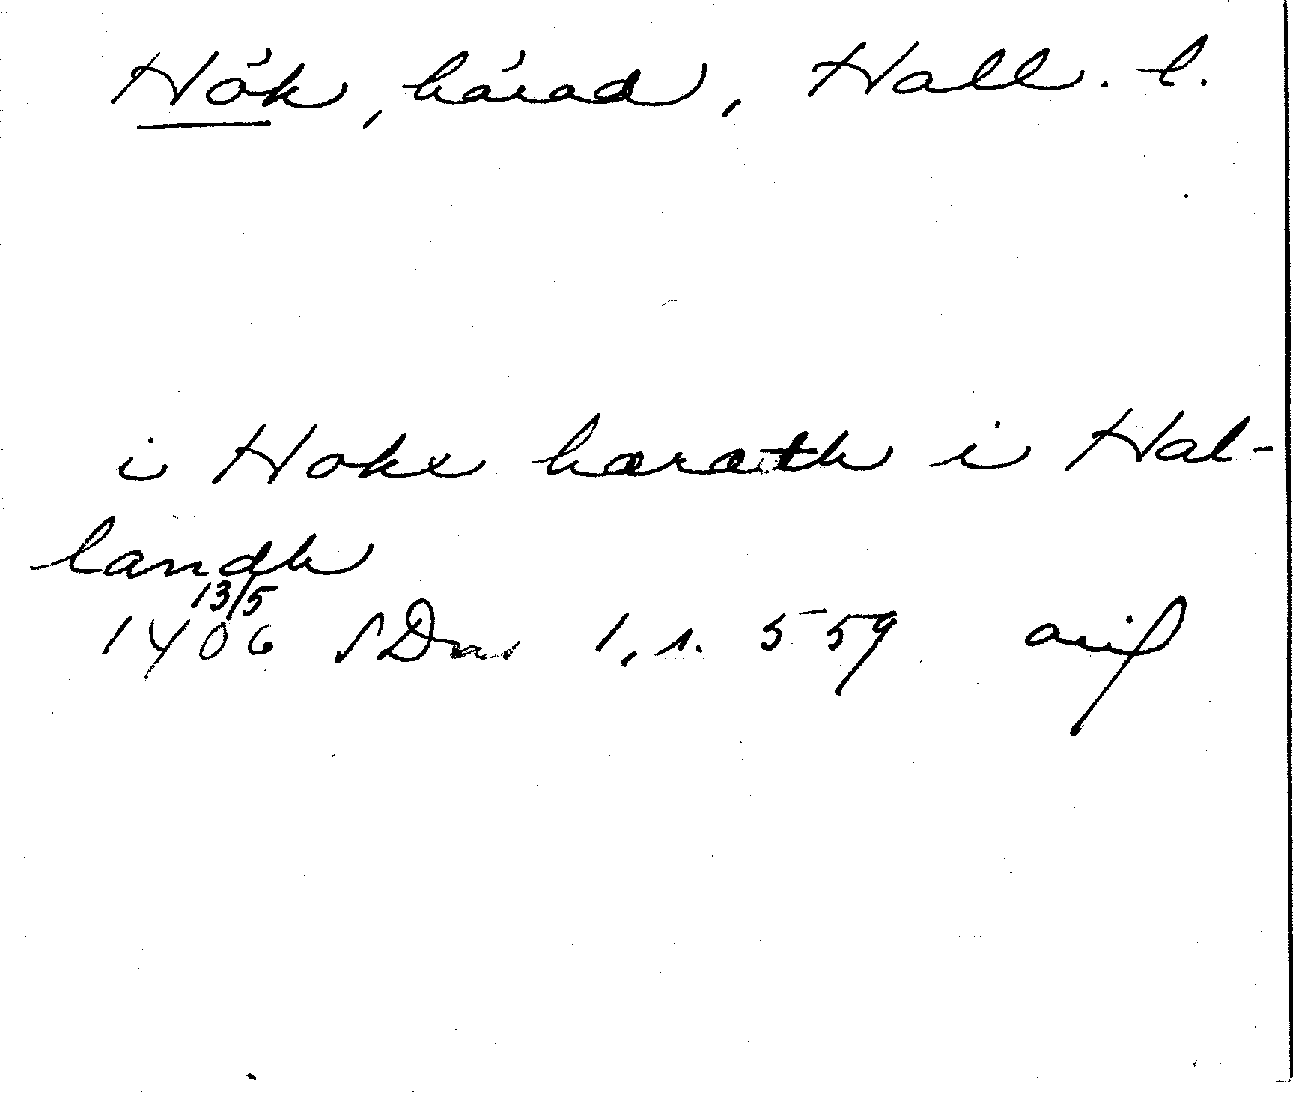 Hök, härad, Hall. l.
i Hoke haræth i Hal-
landh
13/5
1406 SDns 1, s. 559 avs